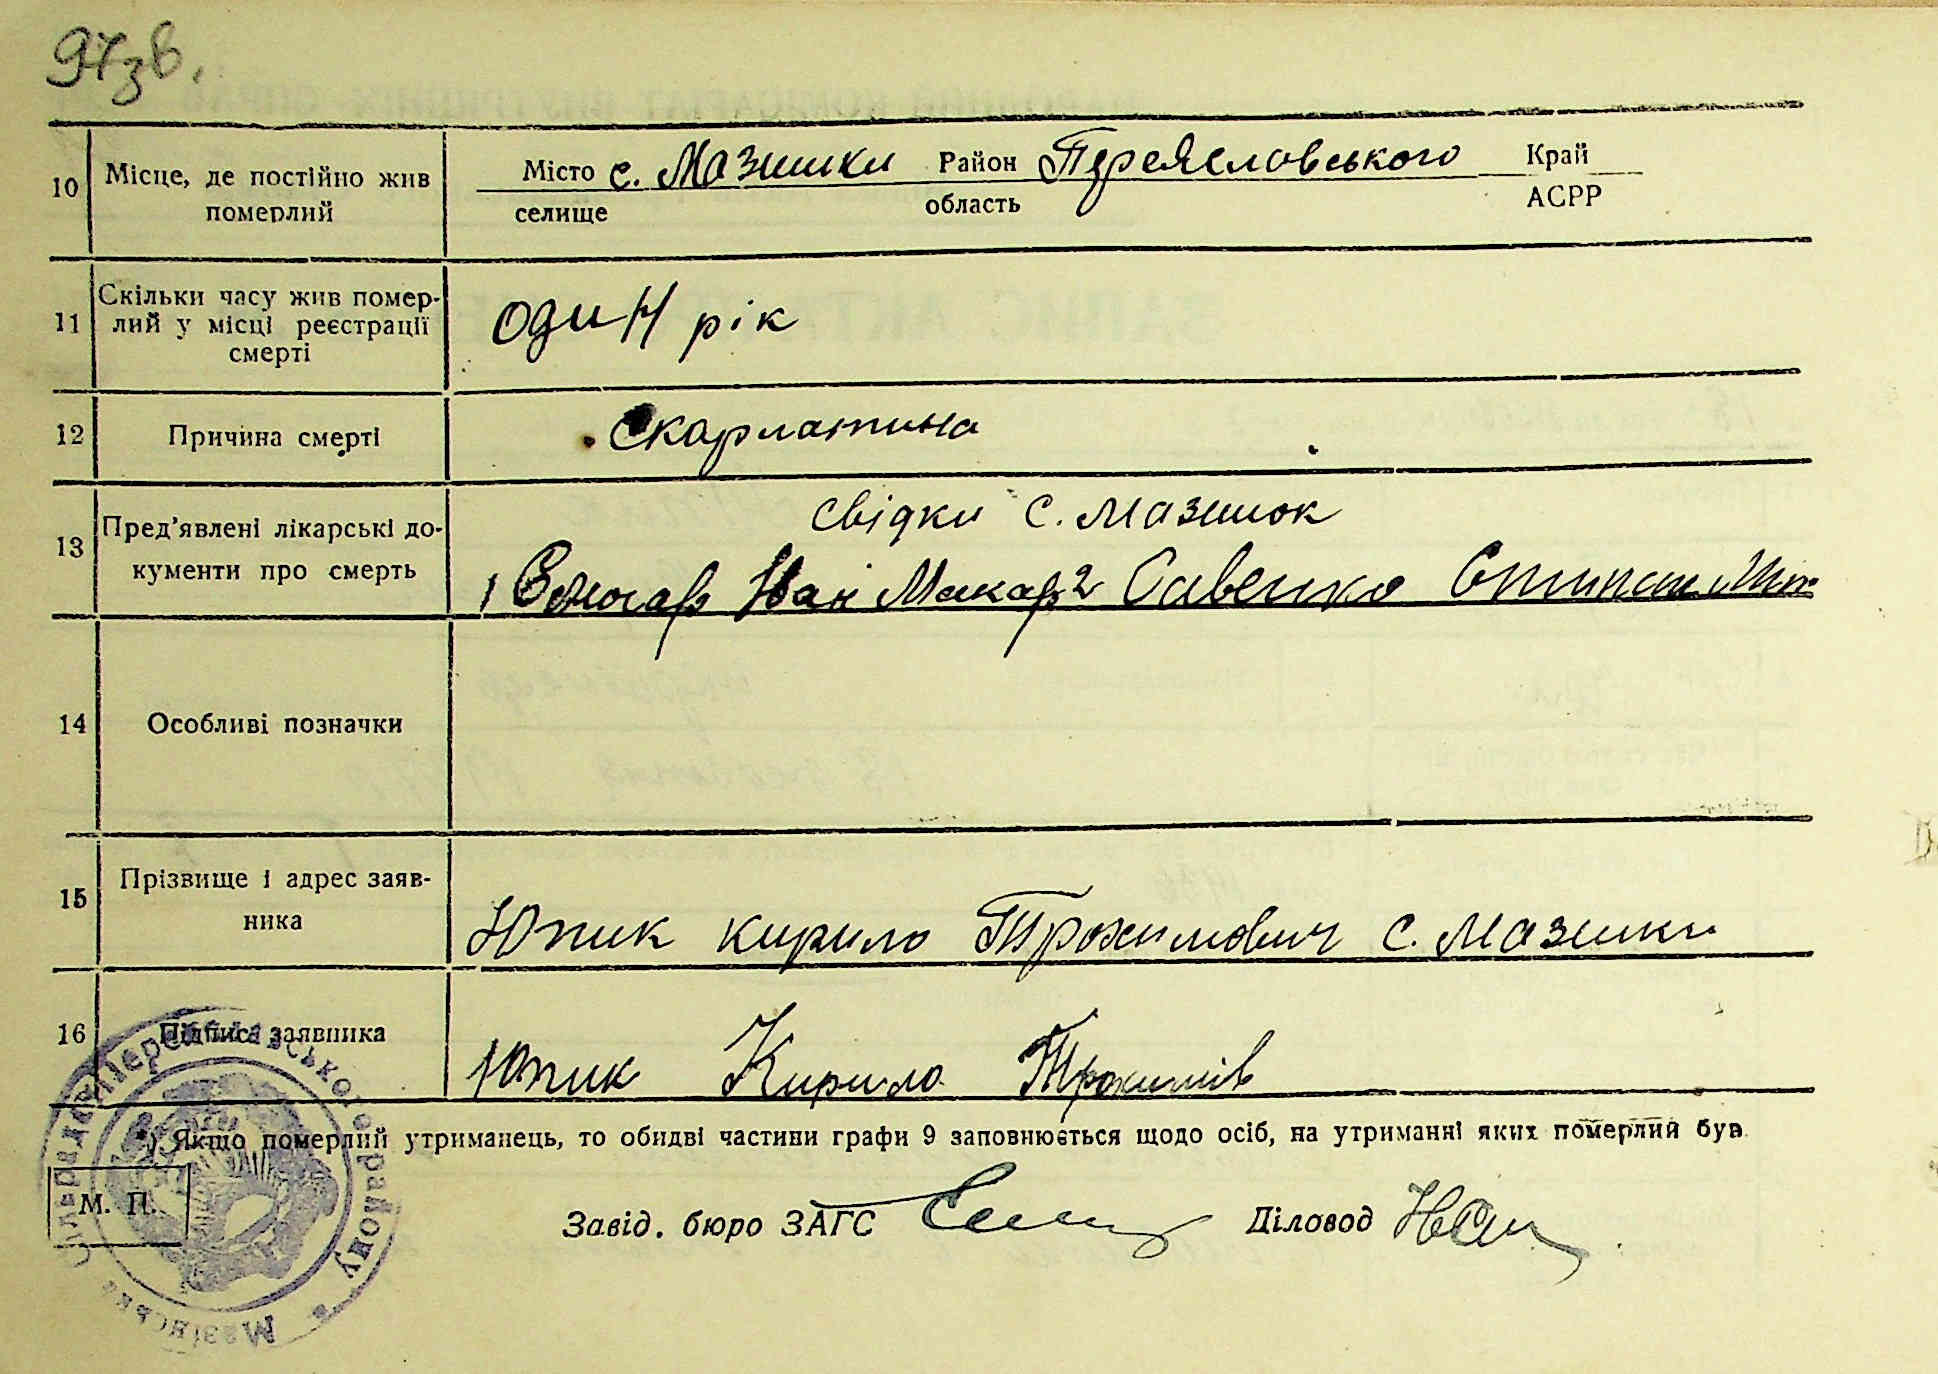 97зв.
10 Місце, де постійно жив померлий
Місто с. Мазінки Район Переяславського Край
селище область АСРР
11 Скільки часу жив помер-
лий у місці реєстрації
смерті
один рік
12 Причина смерті
Скарлатина
13 Пред’явлені лікарські до-
кументи про смерть
свідки с. Мазінок
1 Іван Макар 2 Савенко
14 Особливі позначки
15 Прізвище і адрес заяв-
ника
Юпик Кирило Трохимович с. Мазінки
16 Підпис заявника
Юпик Кирило Трохимів
*) Якщо померлий утриманець, то обидві частини графи 9 заповнюється щодо осіб, на утриманні яких померлий був
М. П.
Завід. бюро ЗАГС Діловод
Мазінська Сільрада Переяславського району